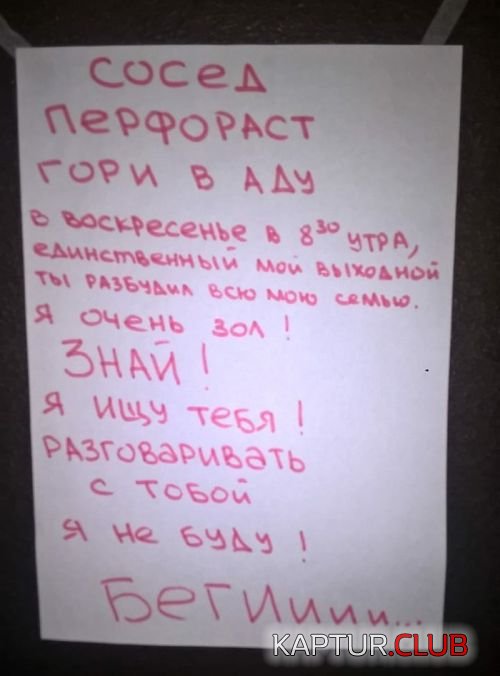 СОСЕД
ПЕРФОРАСТ
ГОРИ В АДУ
В ВОСКРЕСЕНЬЕ В 8 30 УТРА,
ЕДИНСТВЕННЫЙ МОЙ ВЫХОДНОЙ
ТЫ РАЗБУДИЛ ВСЮ МОЮ СЕМЬЮ.
Я ОЧЕНЬ ЗОЛ!
ЗНАЙ!
Я ИЩУ ТЕБЯ!
РАЗГОВАРИВАТЬ
С ТОБОЙ
Я НЕ БУДУ!
БЕГИИИИИ...
KAPTUR.CLUB